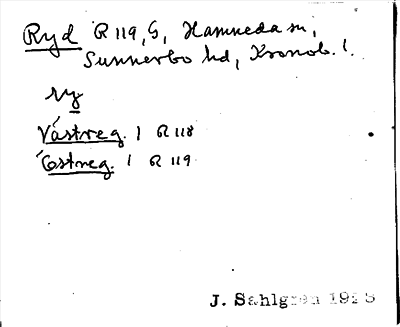 Ryd R 119, G, Hamneda sn,
Sunnerbo hd, Kronob. l.
ry
Västreg. 1 R 118
Östreg. 1 R 119
J. Sahlgren 1925